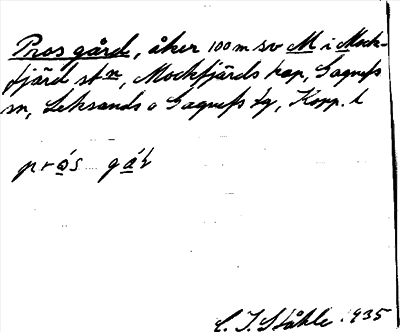 Pros gård, åker 100 m sv M i Mock-
fjärd stn, Mockfjärds kap, Gagnefs
sn, Leksands o Gagnefs tg, Kopp. l
prós gá̱ṛ
C. I. Ståhle 1935